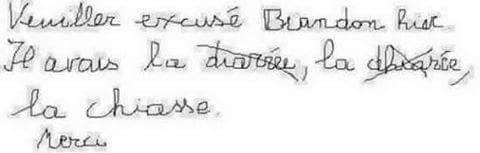 Veuiller excusé Brandon hier.
Il avais la diarrée, la dhiarée,
la chiasse.
Merci